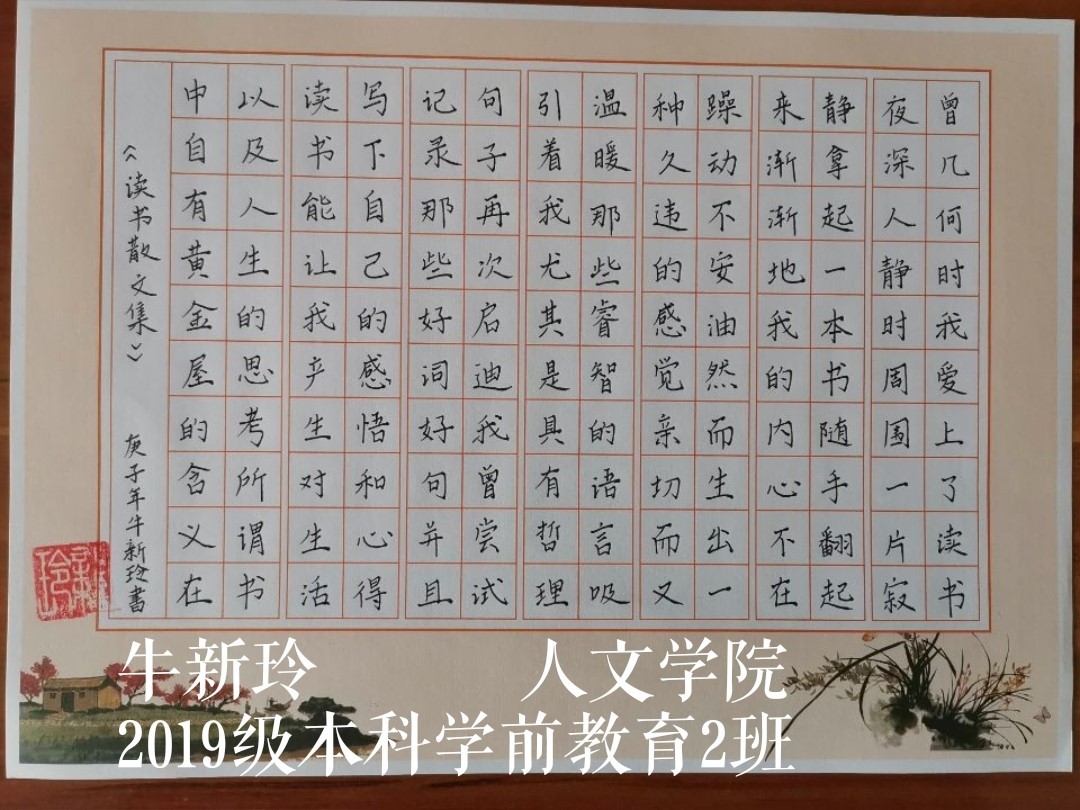 曾几何时我爱上了读书
夜深人静时周围一片寂
静拿起一本书随手翻起
来渐渐地我的内心不在
躁动不安油然而生出一
种久违的感觉亲切而又
温暖那些睿智的语言吸
引着我尤其是具有哲理
句子再次启迪我曾尝试
记录那些好词好句并且
写下自己的感悟和心得
读书能让我产生对生活
以及人生的思考所谓书
中自有黄金屋的含义在
《读书散文集》 庚子年牛新玲书
牛新玲 人文学院
2019级本科学前教育2班